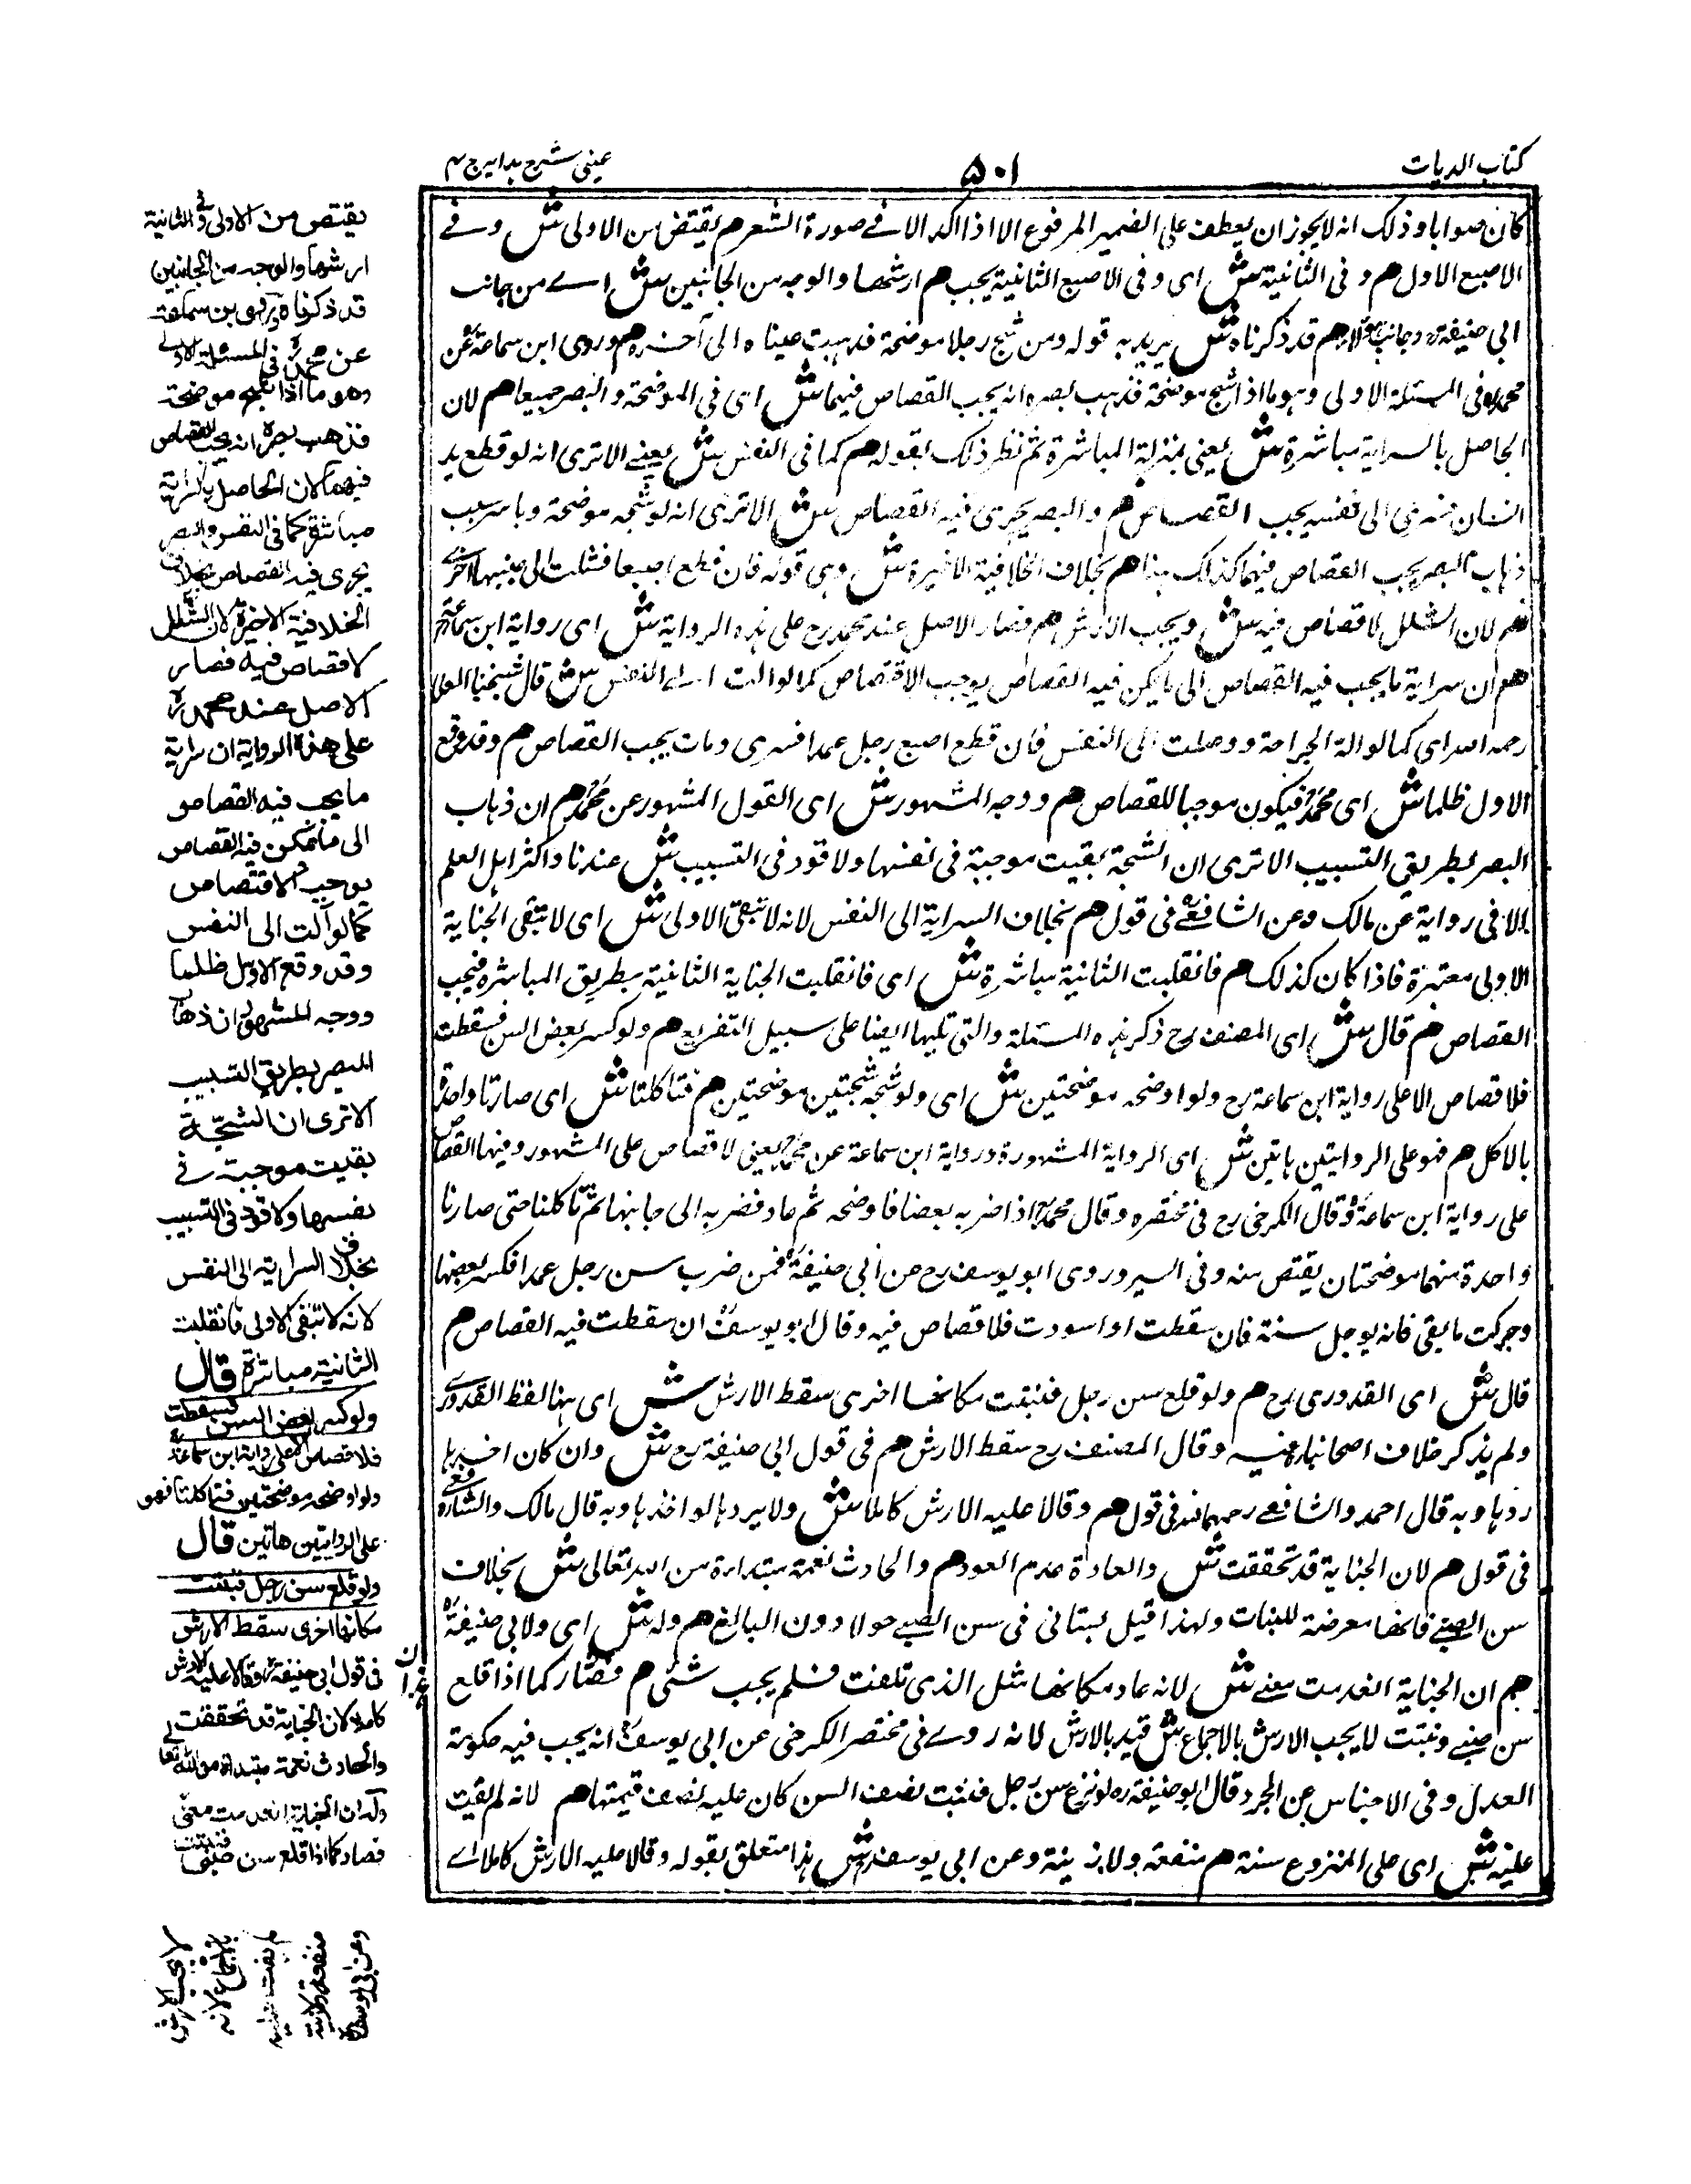 كتاب الديات
۵۰۱
عینی شرح ہدایہ ج ۴
كان صوابا وذلك انه لا يجوز ان يعطف على الضمير المرفوع الا اذا اكد الا فے صورة الشعر هم يقتص من الاولى ش وفے
الاصبع الاول هم و فى الثانية ش اى وفى الاصبع الثانية يجب هم ارشها والوجه من الجانبين ش اے من جانب
ابى حنيفة رح وجانب هؤلاء هم قد ذكرناه ش يريد به قوله ومن شج رجلا موضحة فذهبت عيناه الى آخره هم وروى ابن سماعة عن
محمد رح فى المسئلة الاولى وهو ما اذا شج موضحة فذهب بصره انه يجب القصاص فيهما ش اى فى الموضحة والبصر جميعا هم لان
الحاصل بالسراية مباشرة ش يعنى بمنزلة المباشرة ثم نظر ذلك بقوله هم كما فى النفس ش يعنے الا ترى انه لو قطع يد
انسان فسرى الى نفسه يجب القصاص هم والبصر يجرى فيه القصاص ش الا ترى انه لو شجه موضحة وباشر سبب
ذهاب البصر يجب القصاص فيهما كذلك هذا هم بخلاف الخلافية الاخيرة ش وهى قوله فان قطع اصبعا فشلت الى جنبها اخرے
هم لان الشلل لا قصاص فيه ش ويجب الارش هم فصار الاصل عند محمد رح على هذه الرواية ش اى رواية ابن سماعة
هم ان سراية ما يجب فيه القصاص الى ما يمكن فيه القصاص يوجب الاقتصاص كما لو الت اے النفس ش قال شيخنا العلا
رحمه الله اى كما لو الة الجراحة ووصلت الى النفس فان قطع اصبع رجل عمدا فسرى ومات يجب القصاص هم وقد وقع
الاول ظلما ش اى محمد رح فيكون موجبا للقصاص هم ووجه المشهور ش اى القول المشهور عن محمد رح هم ان ذهاب
البصر بطريق التسبيب الا ترى ان الشجة بقيت موجبة فى نفسها ولا قود فى التسبيب ش عندنا واكثر اهل العلم
الا فى رواية عن مالك وعن الشافعے فى قول هم بخلاف السراية الى النفس لانه لا تبقى الاولى ش اى لا تبقى الجناية
الاولى معتبرة فاذا كان كذلك هم فانقلبت الثانية مباشرة ش اى فانقلبت الجناية الثانية بطريق المباشرة فيجب
القصاص هم قال ش اى المصنف رح ذكر هذه المسئلة والتى تليها ايضا على سبيل التفريع هم ولو كسر بعض السن فسقطت
فلا قصاص الا على رواية ابن سماعة رح ولو اوضحه موضحتين ش اى ولو شجه شجتين موضحتين هم فتاكلتا ش اى صارتا واحدة
بالاكل هم فهو على الروايتين هاتين ش اى الرواية المشهورة ورواية ابن سماعة عن محمد رح يعنى لا قصاص على المشهور وفيها القصاص
على رواية ابن سماعة وقال الكرخى رح فى مختصره وقال محمد رح اذا ضربه بعضا فاوضحه ثم عاد فضربه الى جانبها ثم تاكلتا حتى صارتا
واحدة منهما موضحتان يقتص منه وفى السير وروى ابو يوسف رح عن ابى حنيفة فمن ضرب سن رجل عمدا فكسر بعضها
وحركت ما بقى فانه يوجل سنة فان سقطت او اسودت فلا قصاص فيه وقال ابو يوسف ان سقطت فيه القصاص هم
قال ش اى القدورى رح هم ولو قلع سن رجل فنبتت مكانها اخرى سقط الارش ش اى هنا لفظ القدورے
ولم يذكر خلاف اصحابنا فيه وقال المصنف رح سقط الارش هم فى قول ابى حنيفة رح ش وان كان اخذها
ردها وبه قال احمد والشافعے رحمهما الله فى قول هم وقالا عليه الارش كاملا ش ولا يردها لو اخذها وبه قال مالك والشافعے
فى قول هم لان الجناية قد تحققت ش والعادة عدم العود هم والحادث نعمة مبتدأة من الله تعالى ش بخلاف
سن الصبے فانها معرضة للنبات ولهذا قيل يستانى فى سن الصبے حولا دون البالغ هم وله ش اى ولابى حنيفة رح
هم ان الجناية انعدمت معنے ش لانه عاد مكانها مثل الذى تلفت فلم يجب شئى هم فصار كما اذا قلع
سن صبے ونبتت لا يجب الارش بالاجماع ش قيد بالارش لانه روے فى مختصر الكرخى عن ابى يوسف انه يجب فيه حكومة
العدل وفى الاجناس عن المجرد قال ابو حنيفة رح لو نزع سن رجل فنبت نصف السن كان عليه نصف قيمتها هم لانه لم يفت
عليه ش اى على المنزوع سنة هم منفعة ولا زينة وعن ابى يوسف رح ش هذا متعلق بقوله وقالا عليه الارش كاملا اے
يقتص من الاولى وفى الثانية
ارشها والوجه من الجانبين
قد ذكرناه وروى ابن سماعة
عن محمد رح فى المسئلة الاولے
وهو ما اذا شج موضحة
فذهب بصره انه يجب القصاص
فيهما لان الحاصل بالسراية
مباشرة كما فى النفس والبصر
يجرى فيه القصاص بخلاف
الخلافية الاخيرة لان الشلل
لا قصاص فيه فصار
الاصل عند محمد رح
على هذه الرواية ان سراية
ما يجب فيه القصاص
الى ما يمكن فيه القصاص
يوجب الاقتصاص
كما لو آلت الى النفس
وقد وقع الاول ظلما
ووجه المشهور ان ذهاب
البصر بطريق التسبيب
الا ترى ان الشجة
بقيت موجبة فے
نفسها ولا قود فى التسبيب
بخلاف السراية الى النفس
لانه لا تبقى الاولى فانقلبت
الثانية مباشرة قال
ولو كسر بعض السن فسقطت
فلا قصاص الا على رواية ابن سماعة
ولو اوضحه موضحتين فتاكلتا فهو
على الروايتين هاتين قال
ولو قلع سن رجل فنبتت
مكانها اخرى سقط الارش
فى قول ابى حنيفة رح وقالا عليه الارش
كاملا لان الجناية قد تحققت
والحادث نعمة مبتدأة من الله تعالے
وله ان الجناية انعدمت معنى
فصار كما اذا قلع سن صبى فنبتت
لا يجب الارش
بالاجماع لانه
لم يفت عليه
منفعة ولا زينة
وعن ابى يوسف رح